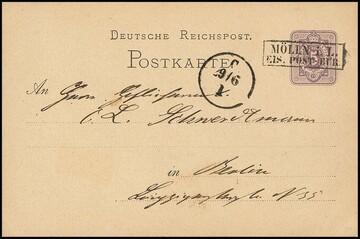 DEUTSCHE REICHSPOST.
POSTKARTE
MÖLLN i. L.
EIS. POST-BÜR.
9/6
An Herrn
E. L.
in Berlin
Leipzigerstraße N 55